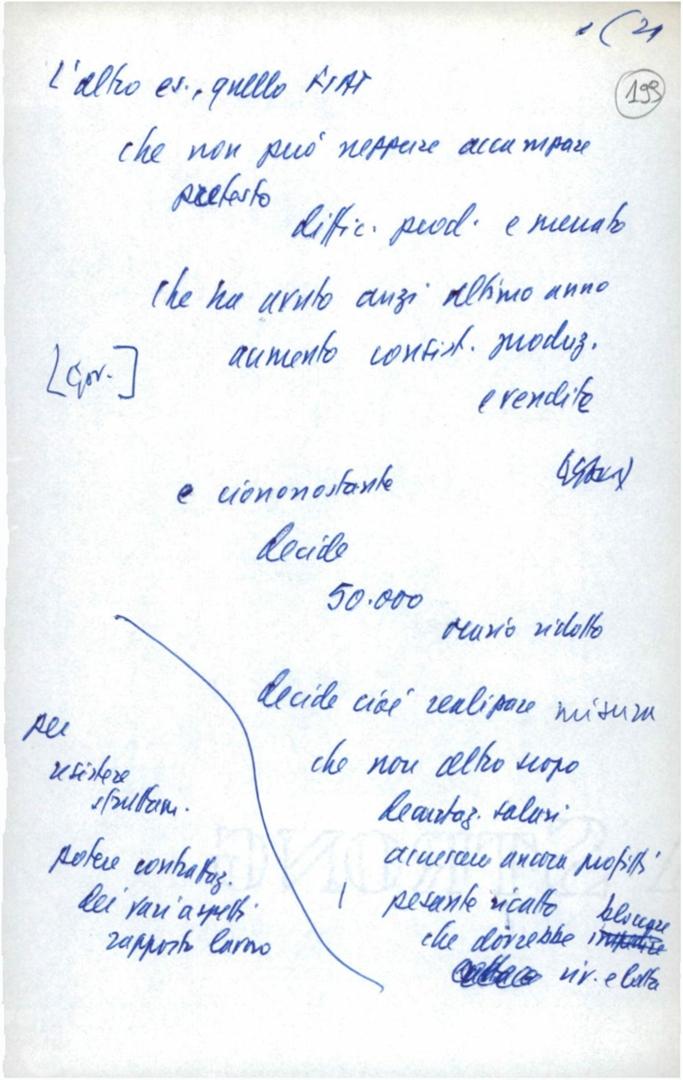 (21
199
L'altro es., quello FIAT
che non può neppure accampare
pretesto
diffic. prod. e mercato
che ha avuto anzi ultimo anno
aumento consist. produz.
e vendite
[Gov.]
e ciononostante
decide
50.000
orario ridotto
decide cioè realizzare misura
che non altro scopo
decurtaz. salari
accrescere ancora profitti
pesante ricatto
che dovrebbe bloccare
riv. e lotta
per
resistere
sfruttam.
potere contrattaz.
dei vari aspetti
rapporto lavoro
STRONG